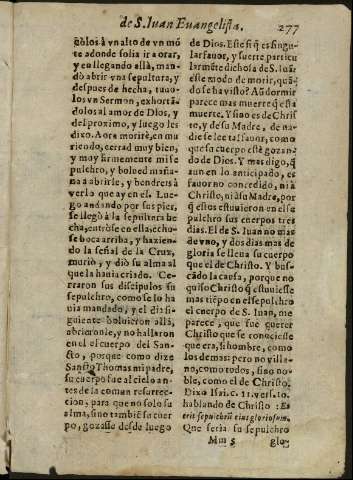 de S. Iuan Euangelista. 277
uòlos à vn alto de vn mõ
te adonde solia ir a orar,
y en llegando allà, man-
dò abrir vna sepultura, y
despues de hecha, tuuo-
los vn Sermon, exhortã-
dolos al amor de Dios, y
del proximo, y luego les
dixo. Aora morirè, en mu
riendo, cerrad muy bien,
y muy firmemente mi se
pulchro, y bolued mañana
na à abrirle, y bendreis à
ver lo que ay en el. Lue-
go andando por sus pies,
se llegò à la sepultura he
cha, entròse en ella, echo-
se boca arriba, y hazien-
do la señal de la Cruz,
murio, y diò su alma al
que la hauia criado. Ce-
rraron sus discipulos su
sepulchro, como se lo ha
uia mandado, y el dia si-
guiente boluieron allà,
abrieronle, y no hallaron
en el el cuerpo del San-
cto, porque como dize
Sancto Thomas mi padre,
su cuerpo fue al cielo an-
tes de la comun resurrec-
cion, para que no solo su
alma, sino tambiẽ su cuer
po, gozasse desde luego
de Dios. Este si q̃ es singu-
lar fauor, y suerte particu
larmẽte dichosa de S. Iuã:
esse modo de morir, quã-
do se ha visto? Aũ dormir
parece mas muerte q̃ esta
muerte. Y sino es de Chris
to, y de su Madre, de na-
die se lee tal fauor, como
que su cuerpo estè gozan-
do de Dios. Y mas digo, q̃
aun en lo anticipado, es
fauor no concedido, ni à
Christo, ni à su Madre, por
q̃ estos estuuieron en el se
pulchro sus cuerpos tres
dias. El de S. Iuan no mas
de vno, y dos dias mas de
gloria se lleua su cuerpo
que el de Christo. Y bus-
cãdo la causa, porque no
quiso Christo q̃ estuuiesse
mas tiẽpo en el sepulchro
el cuerpo de S. Iuan, me
parece, que fue querer
Christo que se conociesse
que era, si hombre, como
los demas: pero no villa-
no, como todos, sino no-
ble, como el de Christo.
Dixo Isai. c. 11. vers. 10.
hablando de Christo: Et
erit sepulchrũ eius gloriosum.
Que seria su sepulchro
Mm 5 glo-